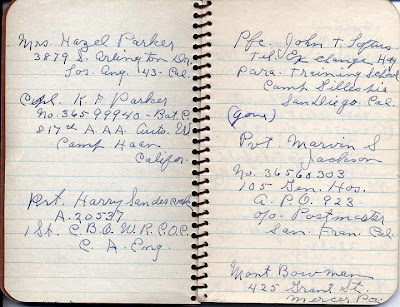 Mrs. Hazel Parker
3879 S. Arlington Dr.
Los. Ang. 43 - Cal.
Cpl. K. F. Parker
No. 36599940 - Bat. C.
817th A.A.A. Auto. W
Camp Haan.
Califor.
Pvt. Harry Sander
A. 20537
1 St. C. B. O. W. R. C. O. C.
C. A. Eng.
Pfc. John T. Loftus
Tel. Exchange Hq
Para. Training School
Camp Gillespie
San Diego. Cal.
(gone)
Pvt. Marvin S
Jackson
No. 36560303
105 Gen. Hos.
A. P. O. 923
c/o. Postmaster
San. Fran. Cal.
Mont Bowman
425 Grant St.
Mercer Pa.